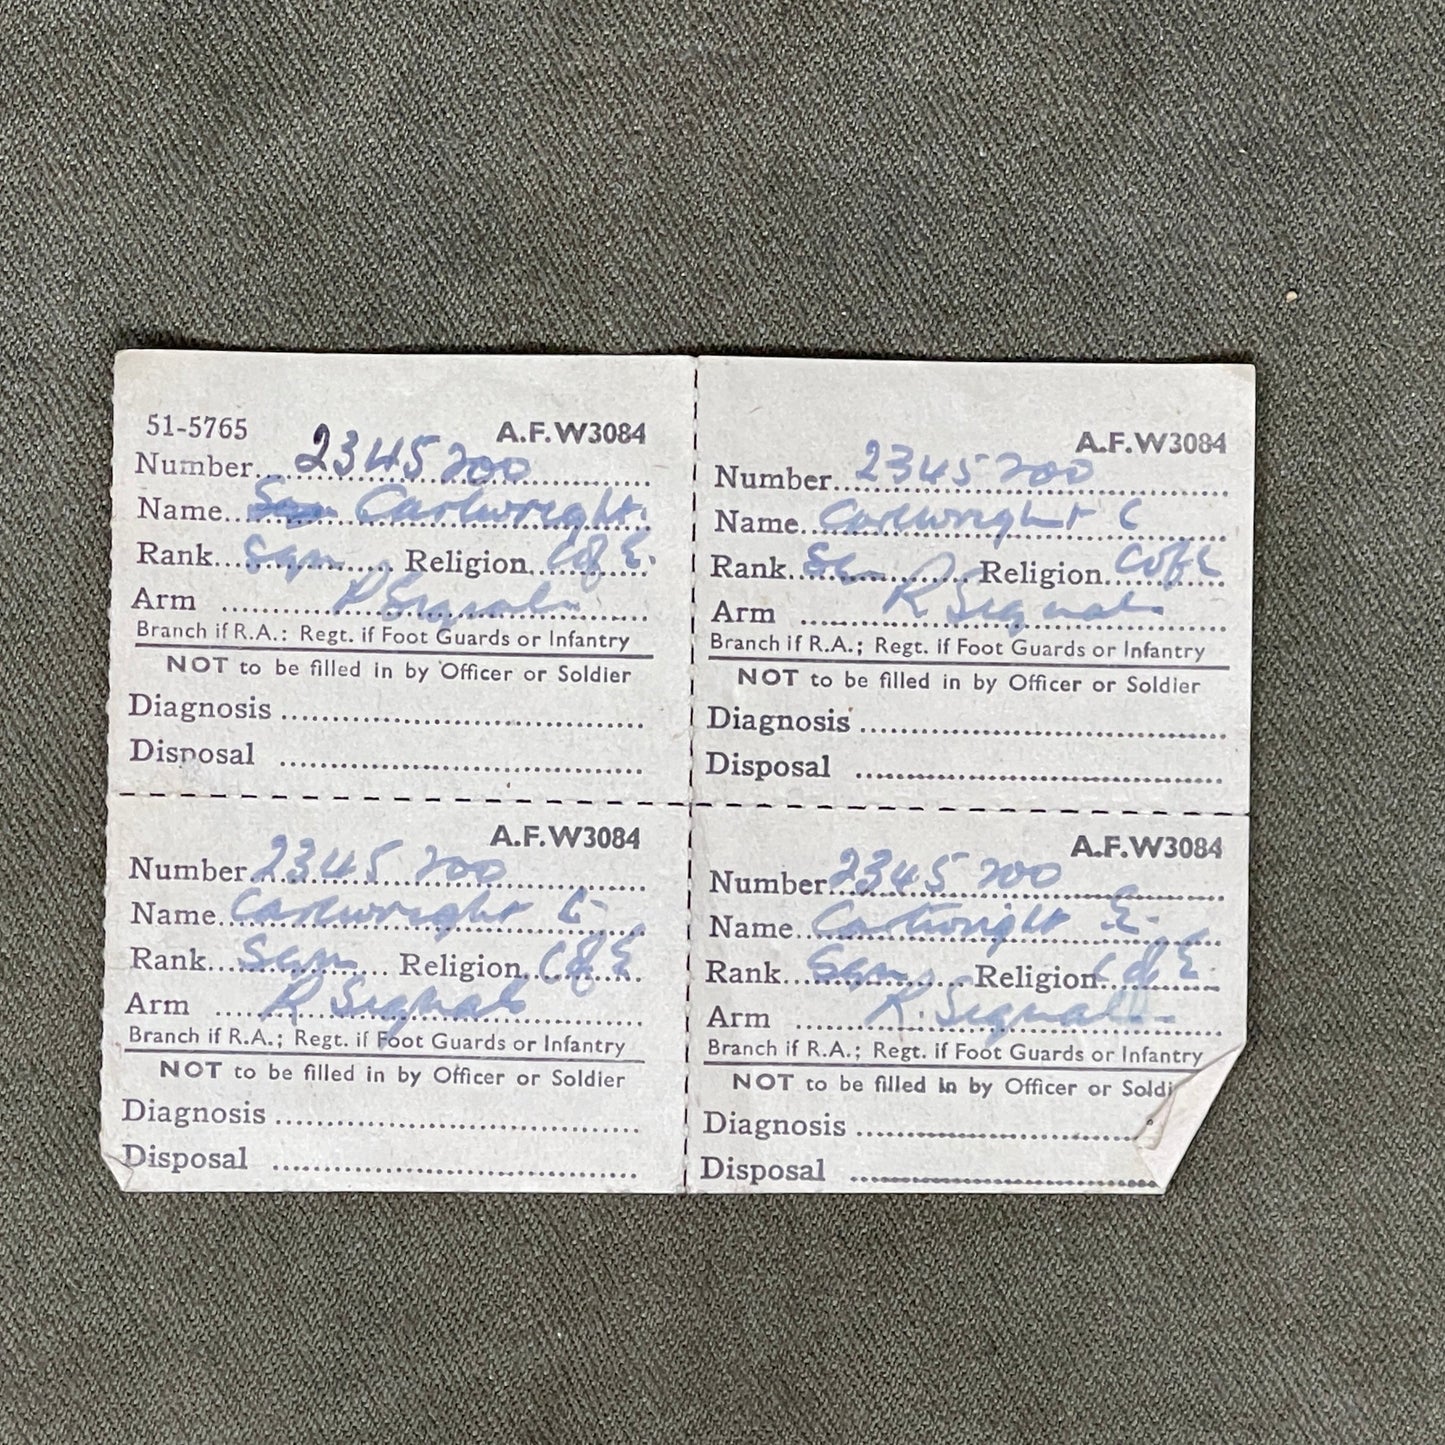 51-5765 A.F.W3084
Number 2345 200
Name Cartwright.
Rank Sgm Religion C of E.
Arm R Signals
Branch if R.A.; Regt. if Foot Guards or Infantry
NOT to be filled in by Officer or Soldier
Diagnosis
Disposal
A.F.W3084
Number 2345 200
Name Cartwright C
Rank Religion C of E
Arm R Signals
Branch if R.A.; Regt. if Foot Guards or Infantry
NOT to be filled in by Officer or Soldier
Diagnosis
Disposal
A.F.W3084
Number 2345 200
Name Cartwright
Rank Sgm Religion C of E
Arm R Signals
Branch if R.A.; Regt. if Foot Guards or Infantry
NOT to be filled in by Officer or Soldier
Diagnosis
Disposal
A.F.W3084
Number 2345 200
Name Cartwright
Rank Sgm Religion C of E
Arm R. Signals
Branch if R.A.; Regt. if Foot Guards or Infantry
NOT to be filled in by Officer or Soldi
Diagnosis
Disposal